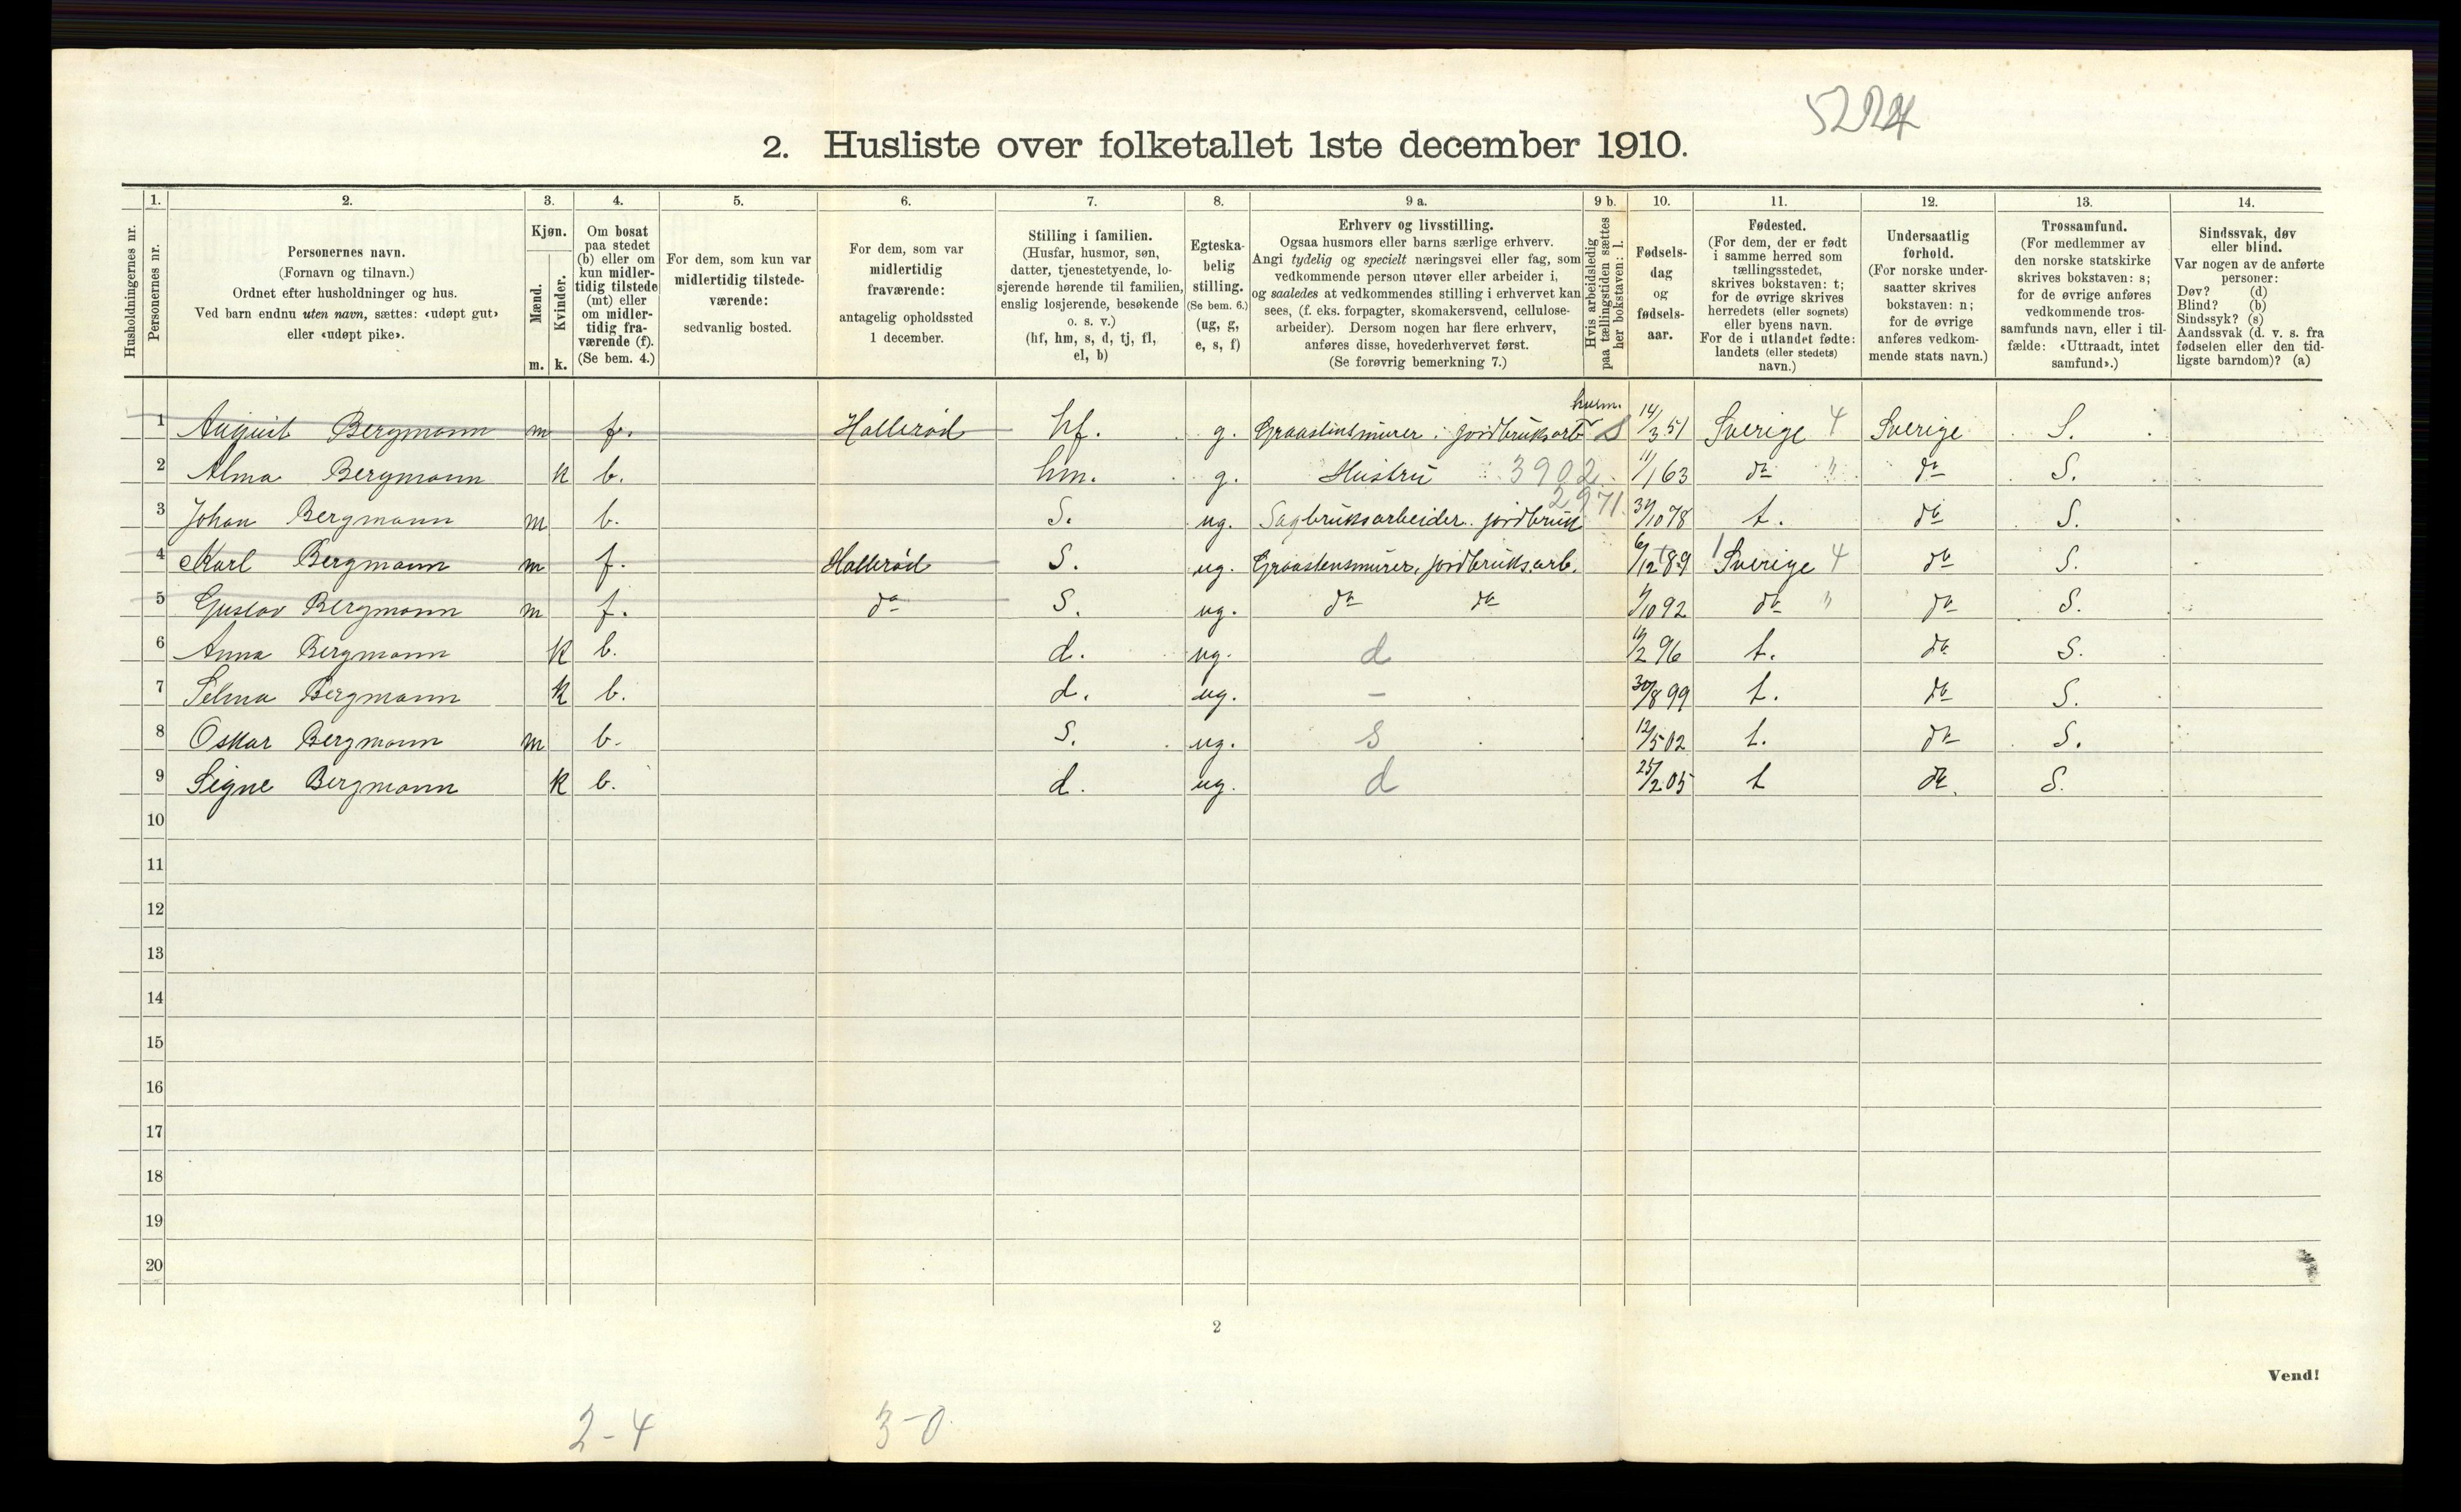 5224
2. Husliste over folketallet 1ste december 1910.
Husholdningernes nr.
1. Personernes nr.
2. Personernes navn. (Fornavn og tilnavn.) Ordnet efter husholdninger og hus. Ved barn endnu uten navn, sættes: «udøpt gut» eller «udøpt pike».
3. Kjøn. Mænd. m. Kvinder. k.
4. Om bosat paa stedet (b) eller om kun midlertidig tilstede (mt) eller om midlertidig fraværende (f). (Se bem. 4.)
5. For dem, som kun var midlertidig tilstedeværende: sedvanlig bosted.
6. For dem, som var midlertidig fraværende: antagelig opholdssted 1 december.
7. Stilling i familien. (Husfar, husmor, søn, datter, tjenestetyende, losjerende hørende til familien, enslig losjerende, besøkende o. s. v.) (hf, hm, s, d, tj, fl, el, b)
8. Egteskabelig stilling. (Se bem. 6.) (ug, g, e, s, f)
9 a. Erhverv og livsstilling. Ogsaa husmors eller barns særlige erhverv. Angi tydelig og specielt næringsvei eller fag, som vedkommende person utøver eller arbeider i, og saaledes at vedkommendes stilling i erhvervet kan sees, (f. eks. forpagter, skomakersvend, cellulosearbeider). Dersom nogen har flere erhverv, anføres disse, hovederhvervet først. (Se forøvrig bemerkning 7.)
9 b. Hvis arbeidsledig paa tællingstiden sættes her bokstaven: l.
10. Fødselsdag og fødselsaar.
11. Fødested. (For dem, der er født i samme herred som tællingsstedet, skrives bokstaven: t; for de øvrige skrives herredets (eller sognets) eller byens navn. For de i utlandet fødte: landets (eller stedets) navn.)
12. Undersaatlig forhold. (For norske undersaatter skrives bokstaven: n; for de øvrige anføres vedkommende stats navn.)
13. Trossamfund. (For medlemmer av den norske statskirke skrives bokstaven: s; for de øvrige anføres vedkommende trossamfunds navn, eller i tilfælde: «Uttraadt, intet samfund».)
14. Sindssvak, døv eller blind. Var nogen av de anførte personer: Døv? (d) Blind? (b) Sindssyk? (s) Aandssvak (d. v. s. fra fødselen eller den tidligste barndom)? (a)
1 August Bergmann m f. Hallerød hf. g. Graastensmurer. jordbruksarb husm. S 14/3 51 Sverige 4 Sverige S.
2 Alma Bergmann k b. hm. g. Hustru 3902 11/1 63 do " do S.
3 Johan Bergmann m b. S. ug. Sagbruksarbeider. jordbruk 2971 /10 78 t. do S.
4 Karl Bergmann m f. Hallerød S. ug. Graastensmurer, jordbruksarb. 6/12 89 Sverige 4 do S.
5 Gustav Bergmann m f. do S. ug. do do /10 92 do " do S.
6 Anna Bergmann k b. d. ug. d /2 96 t. do S.
7 Selma Bergmann k b. d. ug. - 30/8 99 t. do S.
8 Oskar Bergmann m b. S. ug. s 12/5 02 t. do S.
9 Signe Bergmann k b. d. ug. d 25/2 05 t do. S.
10
11
12
13
14
15
16
17
18
19
20
2
Vend!
2-4 3-0